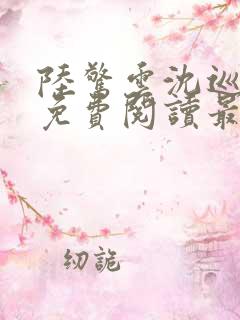 陸驚雲沈巡
免費閱讀最
紉詭